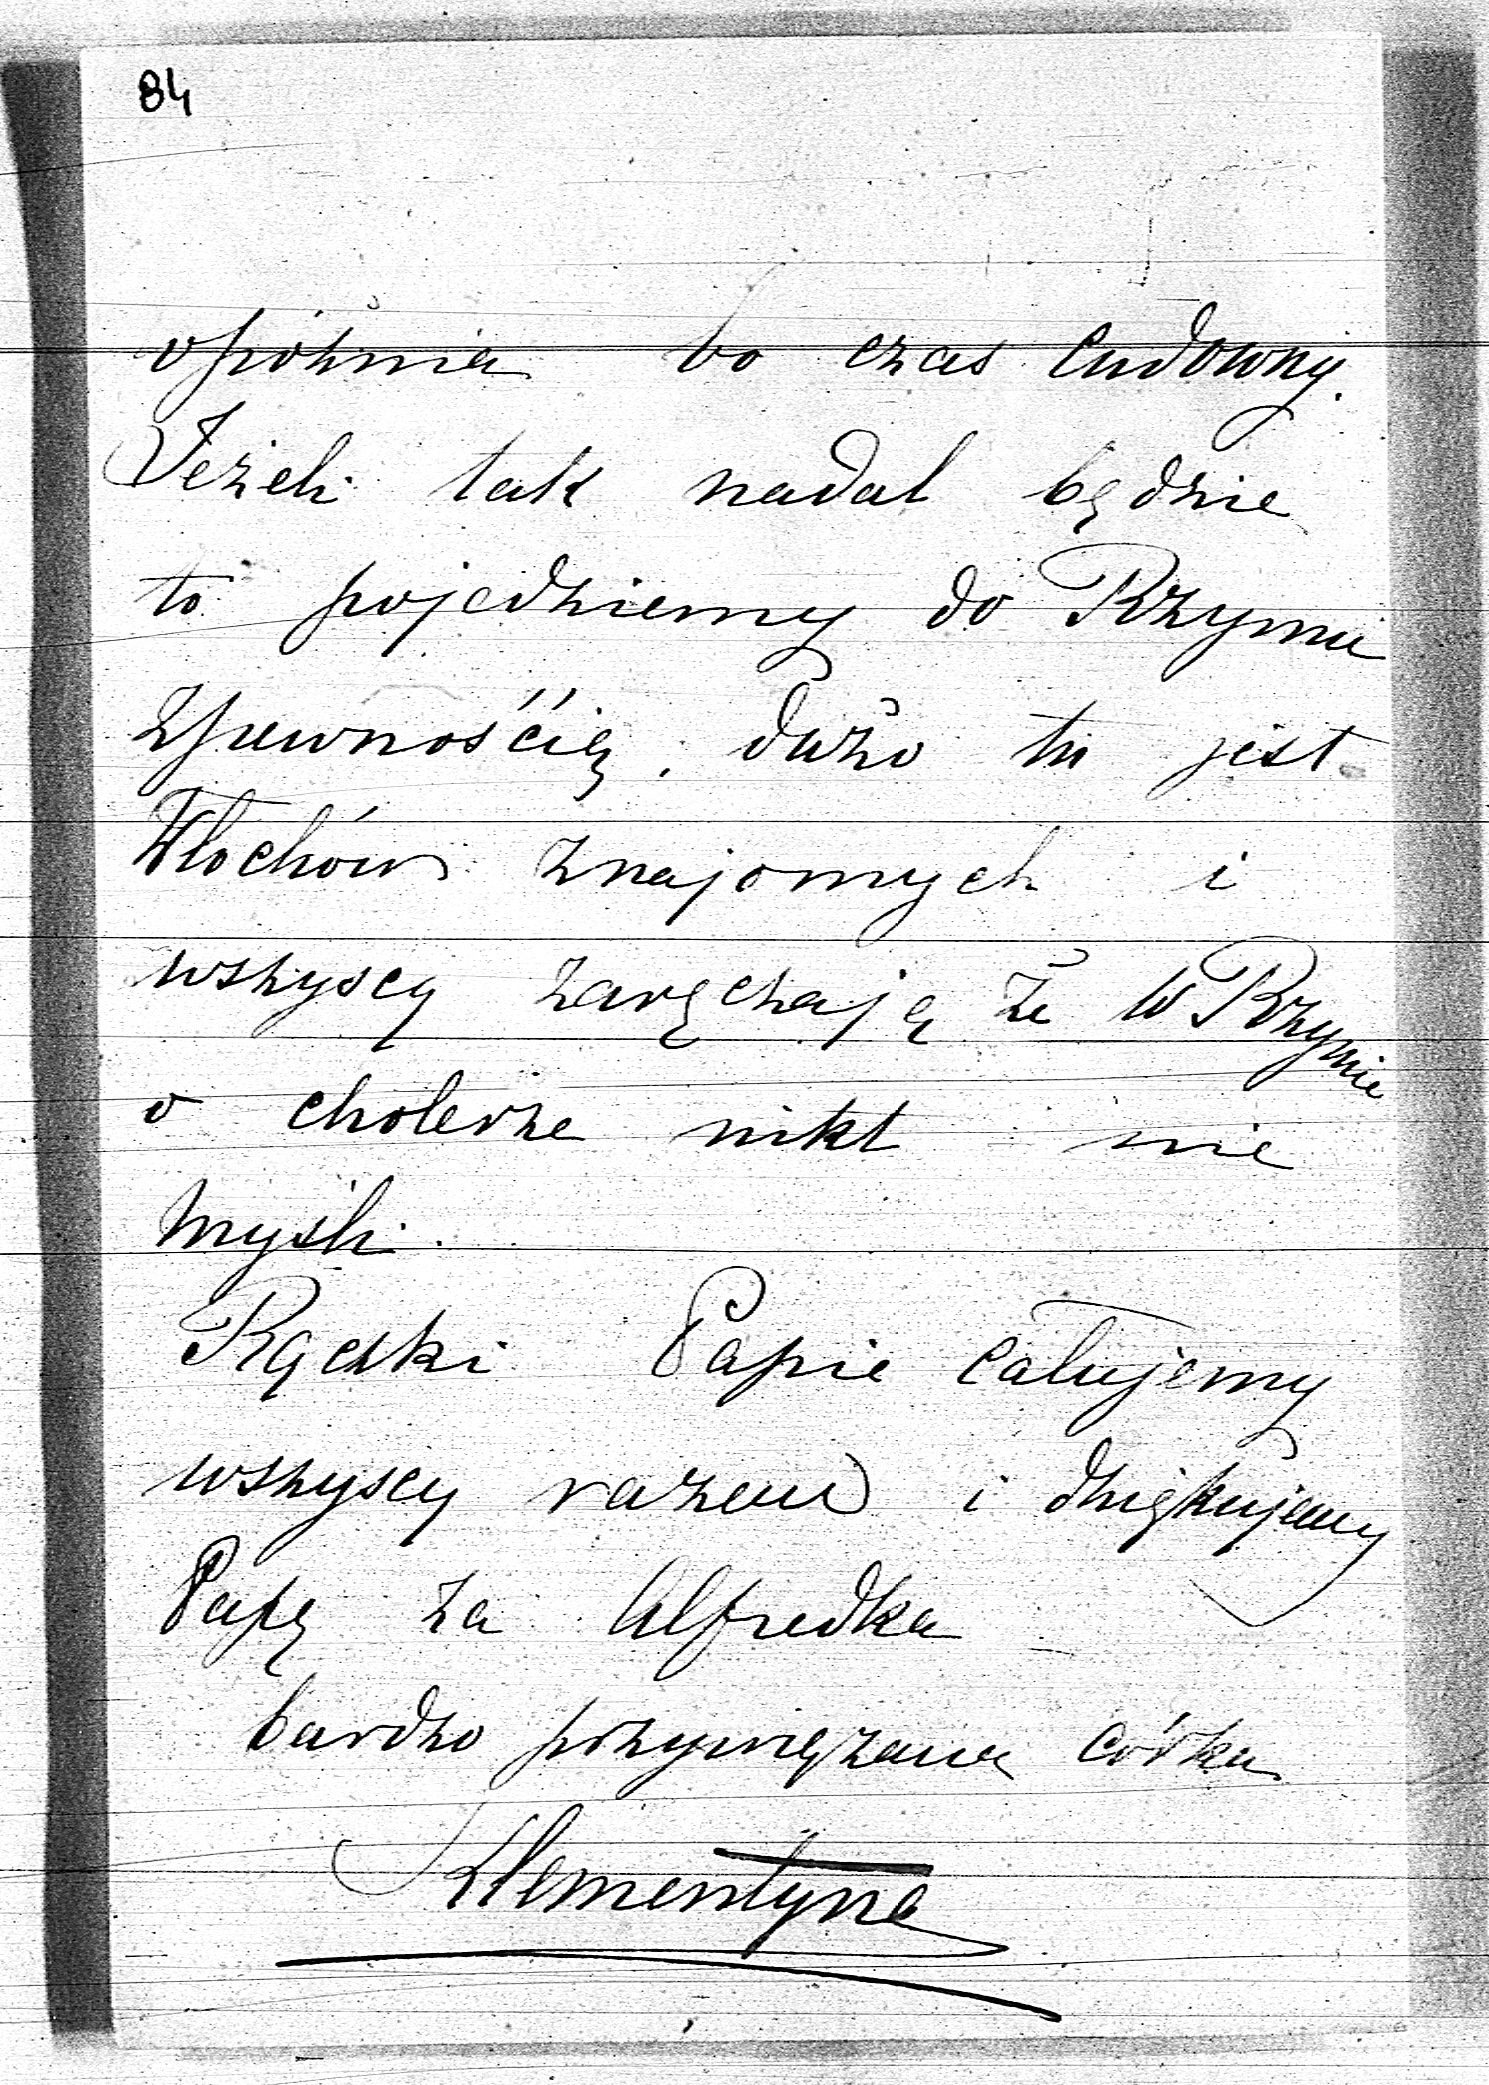 84
opóźnia bo czas cudowny.
Jeżeli tak nadal będzie
to pojedziemy do Rzymu
zpewnośćią, dużo tu jest
Włochów znajomych i
wszyscy zaręczają że w Rzymie
o cholerze nikt nie
myśli.
Rączki Papie całujemy
wszyscy razem i dziękujemy
Papę za Alfredka
bardzo przywiązana córka
Klementyna